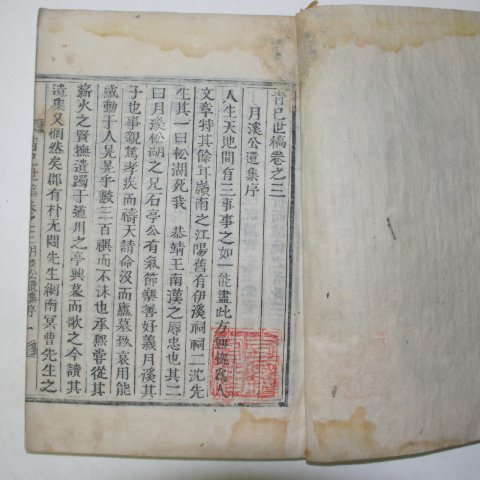 青巳世稿卷之三
月溪公遺集序
人生天地間有三事事之如一能盡此方無愧爲人
文章特其餘耳嶺南之江陽舊有伊溪祠祠二沈先
生其一曰松湖死我 恭靖王南漢之辱忠也其二
曰月溪松湖之兄石亭公有氣節樂善好義月溪其
子也事親篤孝疾而禱天請命沒而廬墓致哀用能
感動于人晃晃乎數三百禩而不沫也承熙嘗從其
薪火之賢撫遺躅于適川之亭興慕而歌之今讀其
遺集又惘然矣郡有朴无悶先生絅南冥曹先生之
卷之三 月溪公遺集序 一